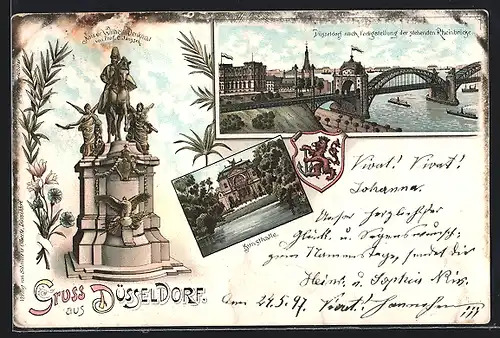 Kaiser Wilhelm Denkmal
von Prof. C. Janssen
Düsseldorf nach Fertigstellung der stehenden Rheinbrücke
Kunsthalle.
Gruss
aus
Düsseldorf.
Vivat! Vivat!
Johanna.
Unser herzlichster
Glück u. Segenswunsch
zum Namenstage, sendet dir
Heinr. u. Sophia
Am 24.5.97. Vivat! Hannchen!!!